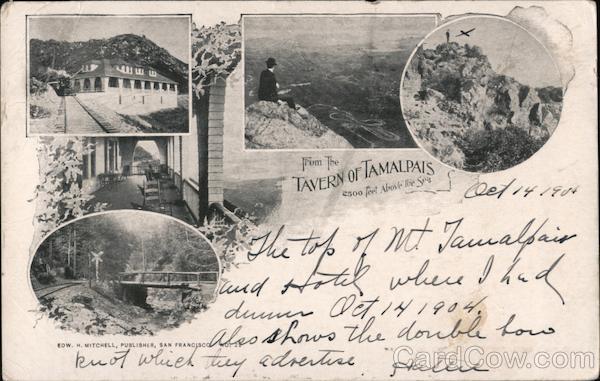 From The
TAVERN OF TAMALPAIS
2500 Feet Above The Sea
Oct 14 1904
The top of Mt Tamalpais
and Hotel where I had
dinner Oct 14 1904.
Also shows the double bow
knot which they advertise
EDW. H. MITCHELL, PUBLISHER, SAN FRANCISCO
CardCow.com
CardCow.com